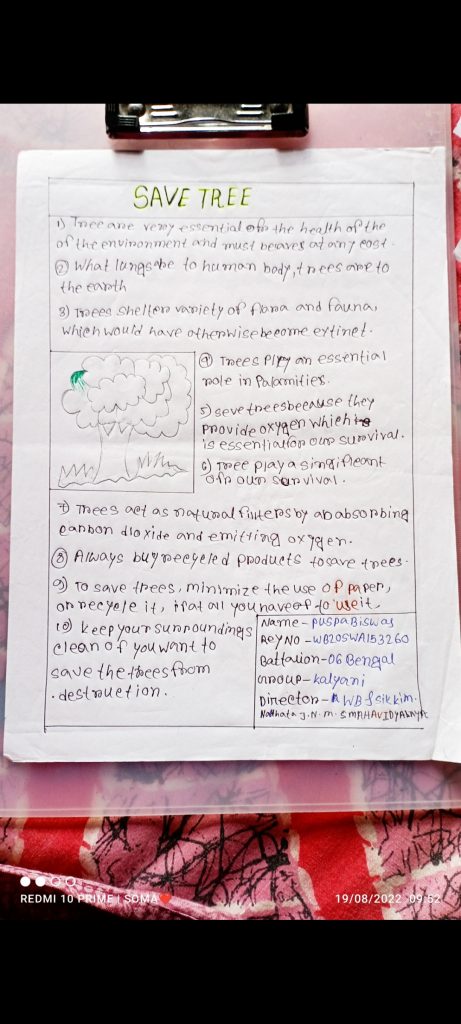 SAVE TREE
1) Tree are very essential ofn the health of the
of the environment and must beaves at any cost.
② What lungs are to human body, trees are to
the earth
3) Trees shelter variety of flora and fauna,
which would have otherwise become extinct.
④ Trees play an essential
role in
5) seve trees because they
provide oxygen which
is essential for our survival.
6) Tree play a singificant
ofn our survival.
7) Trees act as natural filters by ab absorbing
carbon dioxide and emitting oxygen.
⑧ Always buy recycled products to save trees.
9) To save trees, minimize the use of paper,
or recycle it, if at all you have of to use it
10) keep your surroundings
clean of you want to
save the trees from
destruction.
Name - PUSPA Biswas
Rey NO - WB20SWA153260
Battalion - 06 Bengal
Group - Kalyani
Director - A WB & sikkim.
J.N.M. S MAHAVIDYALAYA
REDMI 10 PRIME | SOMA ❤️
19/08/2022 09:52